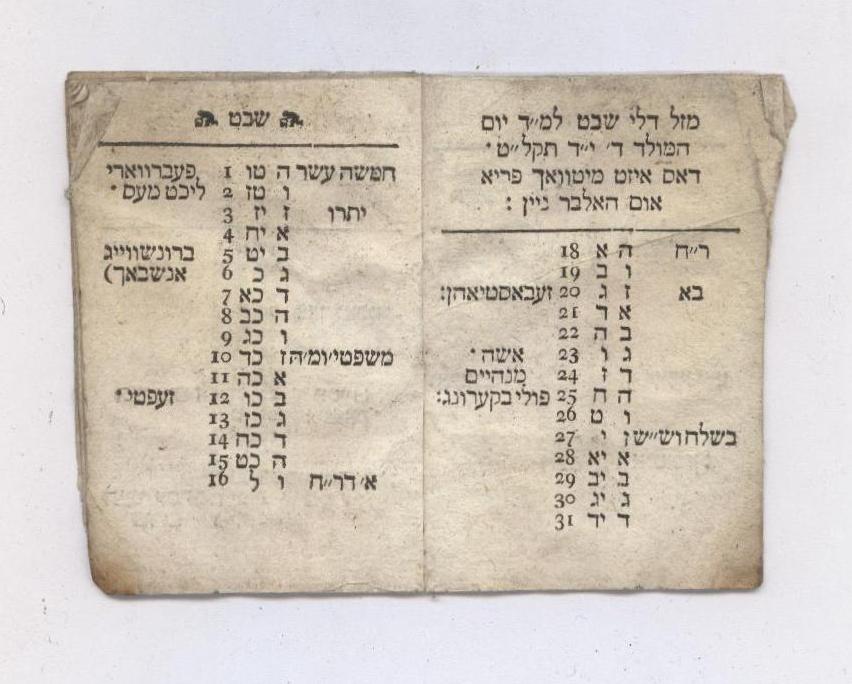 מזל דלי שבט למ״ד יום
המולד ד׳ י״ד תקל״ט
דאס איזט מיטוואך פריא
אום האלבר ניין :
ר״ח ה א 18
ו ב 19
בא ז ג 20 זעבאסטיאהן:
א ד 21
ב ה 22
ג ו 23 אשה
ד ז 24 מנהיים
ה ח 25 פולי בקערונג:
ו ט 26
בשלח וש״ש ז י 27
א יא 28
ב יב 29
ג יג 30
ד יד 31
שבט
חמשה עשר ה טו 1 פעברווארי
ו טז 2 ליכט מעס
יתרו ז יז 3
א יח 4
ב יט 5 ברונשווייג
ג כ 6 אנשבאך)
ד כא 7
ה כב 8
ו כג 9
משפטי׳ ומ״ה ז כד 10
א כה 11
ב כו 12 זעפטי׳
ג כז 13
ד כח 14
ה כט 15
א׳ דר״ח ו ל 16